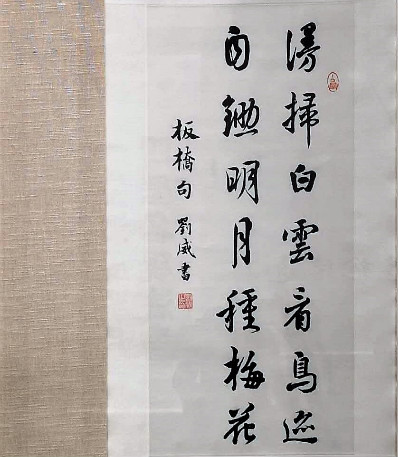 漫掃白雲看鳥迹
自鋤明月種梅花
板橋句 劉威書